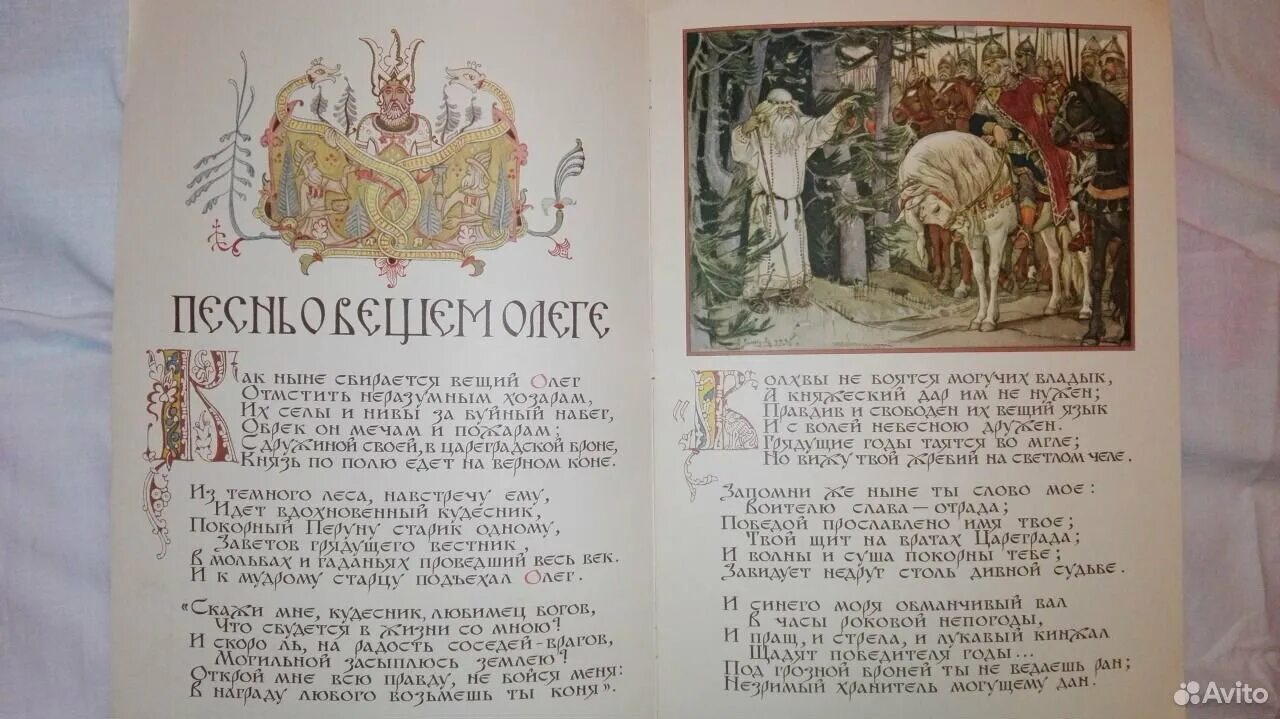 ПЕСНЬ О ВЕЩЕМ ОЛЕГЕ
Как ныне сбирается вещий Олег
Отмстить неразумным хозарам,
Их селы и нивы за буйный набег,
Обрек он мечам и пожарам;
С дружиной своей, в цареградской броне,
Князь по полю едет на верном коне.
Из темного леса, навстречу ему,
Идет вдохновенный кудесник,
Покорный Перуну старик одному,
Заветов грядущего вестник,
В мольбах и гаданьях проведший весь век.
И к мудрому старцу подъехал Олег.
"Скажи мне, кудесник, любимец богов,
Что сбудется в жизни со мною?
И скоро ль, на радость соседей-врагов,
Могильной засыплюсь землею?
Открой мне всю правду, не бойся меня:
В награду любого возьмешь ты коня".
Волхвы не боятся могучих владык,
А княжеский дар им не нужен;
Правдив и свободен их вещий язык
И с волей небесною дружен.
Грядущие годы таятся во мгле;
Но вижу твой жребий на светлом челе.
Запомни же ныне ты слово мое:
Воителю слава — отрада;
Победой прославлено имя твое;
Твой щит на вратах Цареграда;
И волны и суша покорны тебе;
Завидует недруг столь дивной судьбе.
И синего моря обманчивый вал
В часы роковой непогоды,
И пращ, и стрела, и лукавый кинжал
Щадят победителя годы...
Под грозной броней ты не ведаешь ран;
Незримый хранитель могущему дан.
Avito